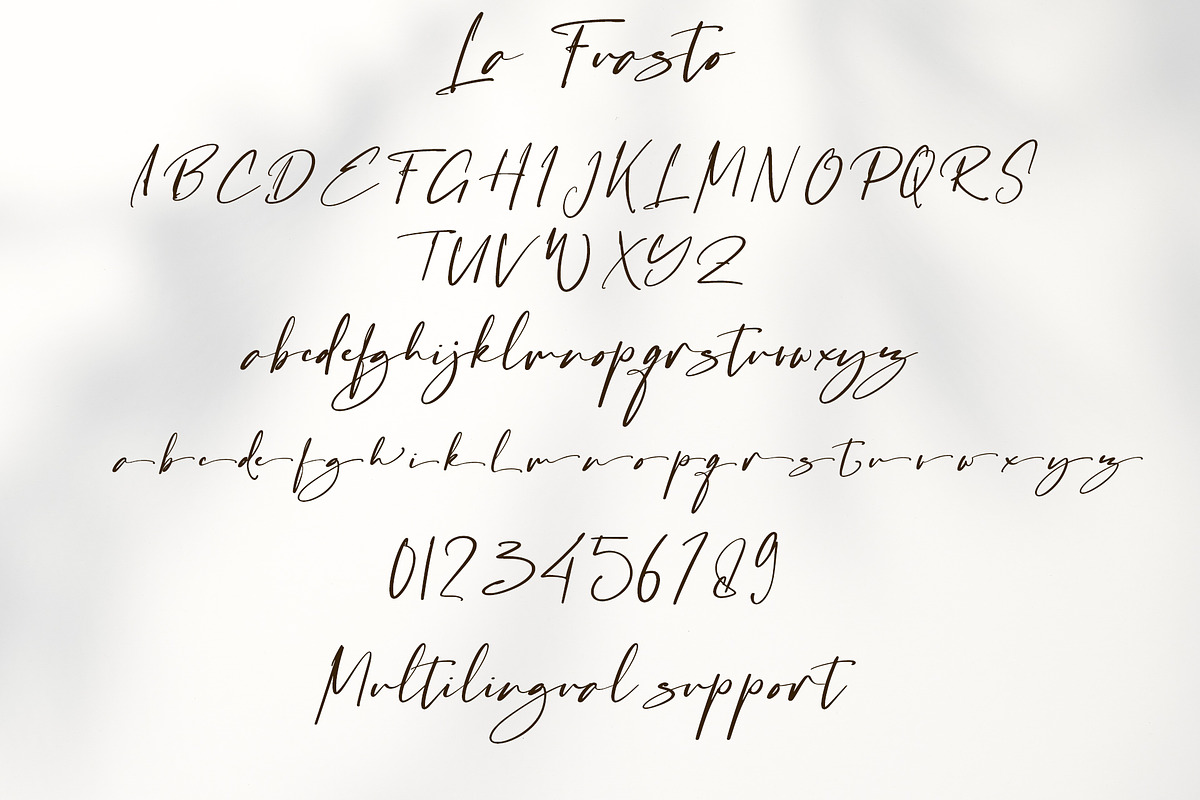 La Frasto
ABCDEFGHIJKLMNOPQRS
TUVWXYZ
abcdefghijklmnopqrstuvwxyz
abcdefghiklmnopqrstuvwxyz
0123456789
Multilingual support